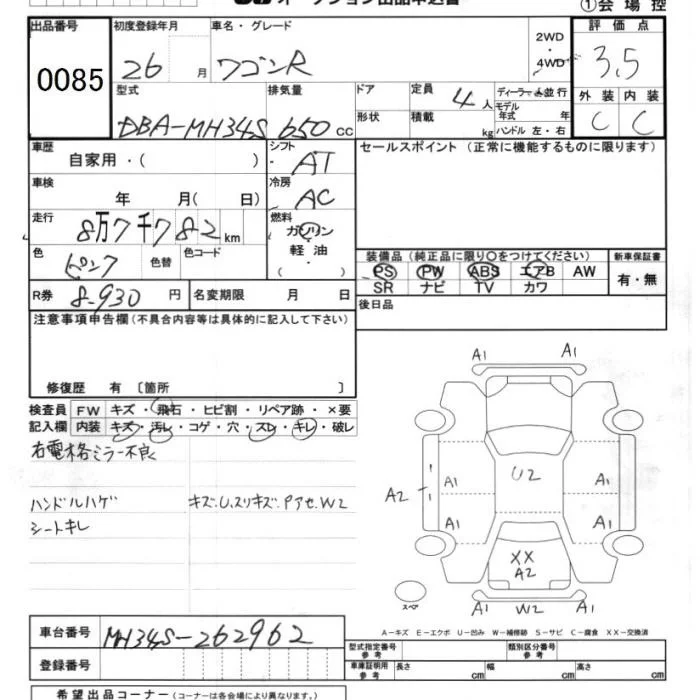 ①会場控
出品番号 初度登録年月 車名・グレード 2WD ・ 4WD 評価点
0085 26 月 ワゴンR 3.5
型式 排気量 ドア 定員 4 人 ディーラー・並行 外装 内装
モデル
DBA-MH34S 650 cc 形状 積載 kg 年式 年 C C
ハンドル 左・右
車歴 シフト セールスポイント (正常に機能するものに限ります)
自家用・( ) AT
車検 冷房
年 月( 日) AC
走行 燃料
8万7千782 km ガソリン
色 色替 色コード 軽油 装備品(純正品に限り○をつけてください) 新車保証書
ピンク ( ) PS PW ABS エアB AW 有・無
SR ナビ TV カワ
R券 8-930 円 名変期限 月 日 後日品
注意事項申告欄(不具合内容等は具体的に記入して下さい)
修復歴 有 〔箇所 〕
検査員 FW キズ・飛石・ヒビ割・リペア跡・×要
記入欄 内装 キズ・汚レ・コゲ・穴・スレ・キレ・破レ
右電格ミラー不良
ハンドルハゲ キズ.U.スリキズ.Pアセ.W2
シートキレ
A1 A1
U2
A2 A1 A1
A1 A1
XX
A2
A1 W2 A1
スペア
A-キズ E-エクボ U-凹み W-補修跡 S-サビ C-腐食 XX-交換済
車台番号 MH34S-262962
登録番号
型式指定番号 参考 類別区分番号 参考
車庫証明用 参考 長さ cm 幅 cm 高さ cm
希望出品コーナー(名称は各会場により異なります。)